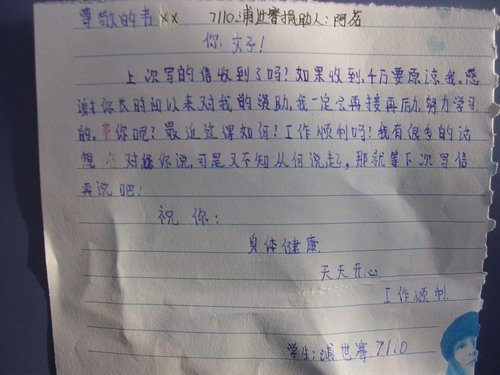 尊敬的韦xx 7110.浦世赛捐助人:阿茹
你,好!
上次写的信收到了吗?如果收到,千万要原谅我,感
谢你长时间以来对我的帮助,我一定会再接再历,努力学习
的。你呢?最近过得如何!工作顺利吗!我有很多的话
想 对你说,可是又不知从何说起,那就等下次写信
再说吧!
祝你:
身体健康.
天天开心
工作顺利.
学生:浦世赛 7110